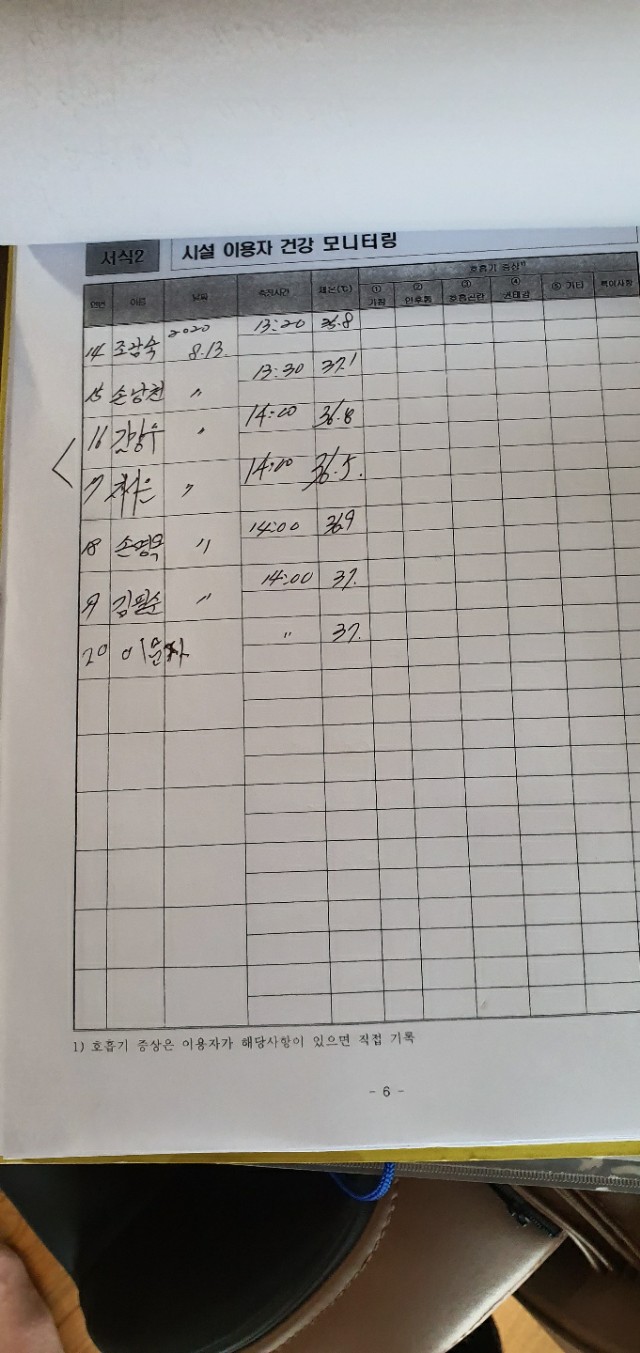 서식2 시설 이용자 건강 모니터링
호흡기 증상1)
연번 이름 날짜 측정시간 체온(℃) ① 기침 ② 인후통 ③ 호흡곤란 ④ 권태감 ⑤ 기타 특이사항
14 조감숙 2020 8.13. 13:20 36.8
15 손남천 〃 13:30 37.1
16 〃 14:00 36.8
17 〃 14:00 36.5.
18 손영목 〃 14:00 36.9
19 김필순 〃 14:00 37.
20 이문자 〃 37.
1) 호흡기 증상은 이용자가 해당사항이 있으면 직접 기록
- 6 -